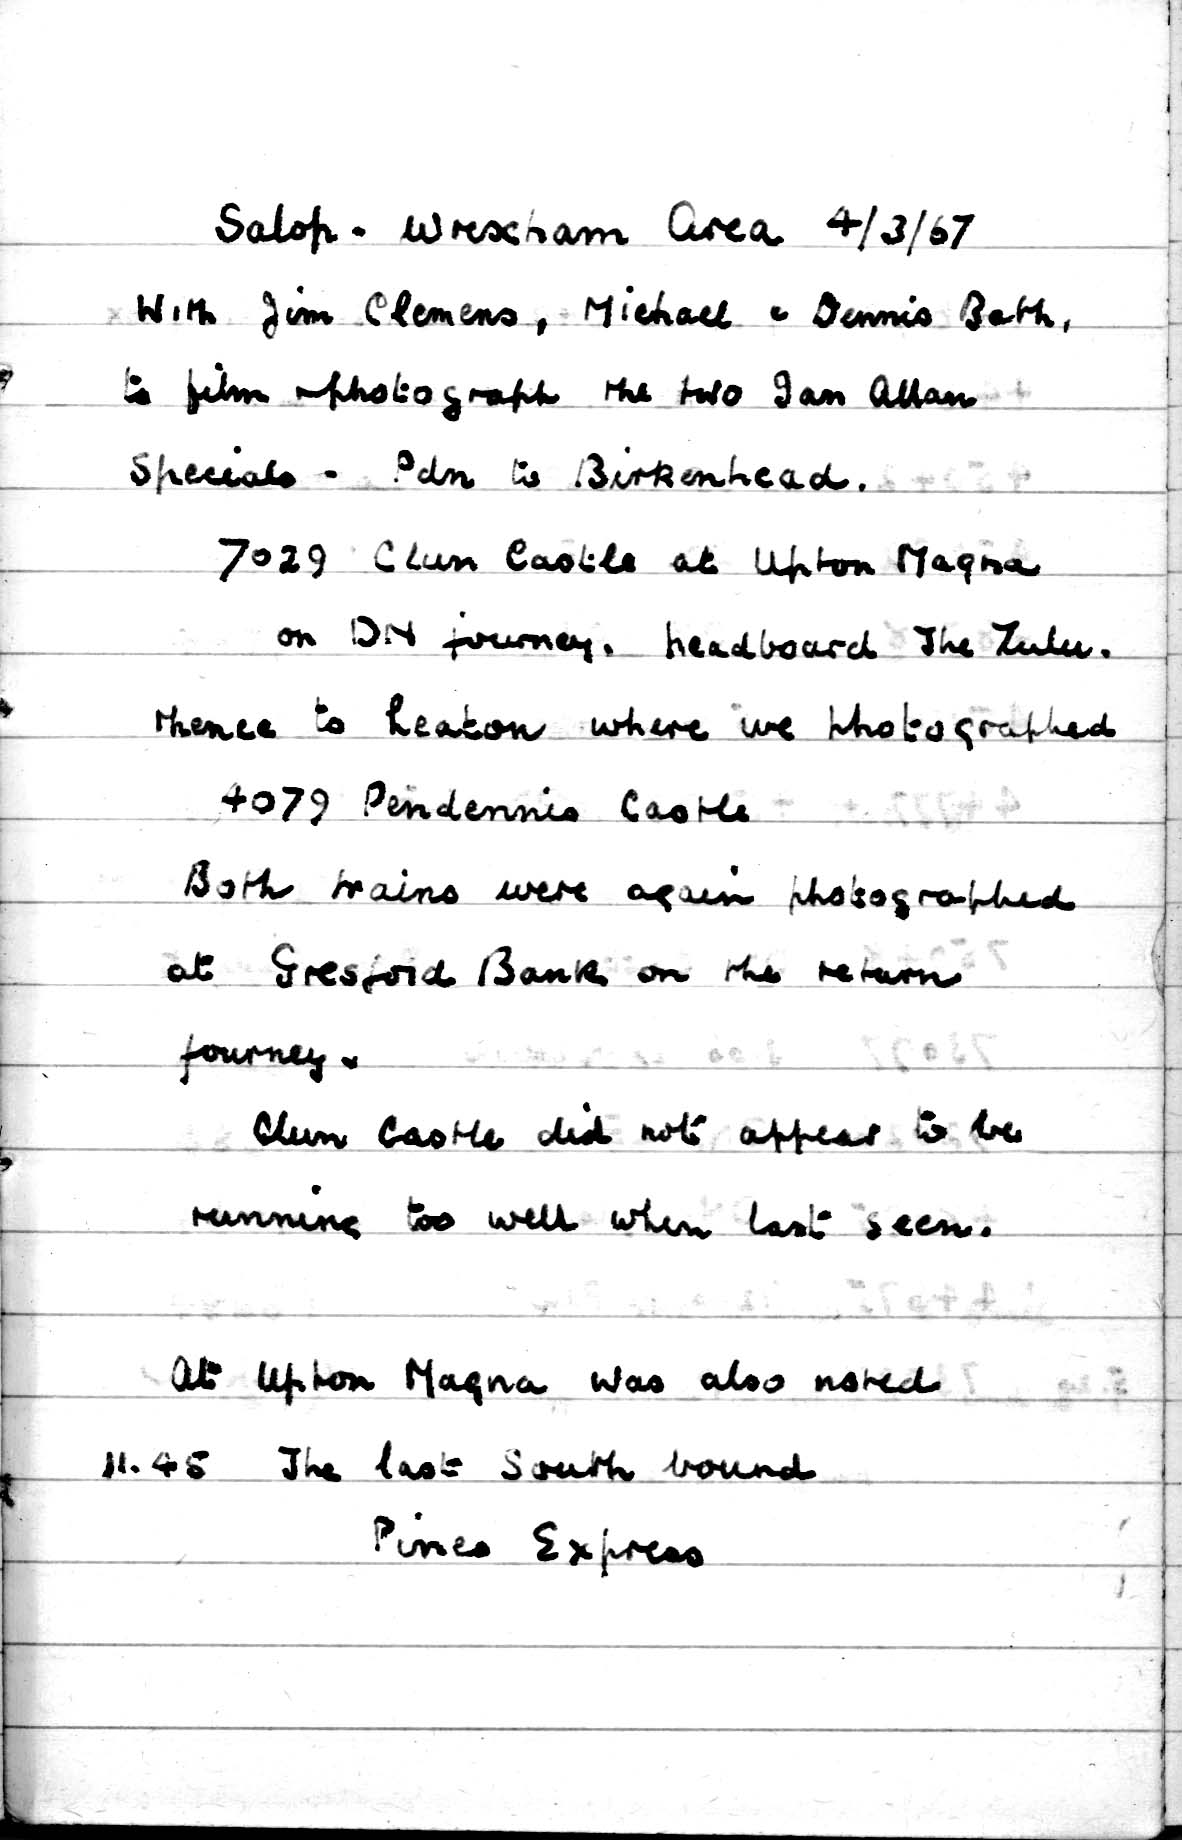 Salop - Wrexham Area 4/3/67
With Jim Clemens, Michael & Dennis Bath,
to film & photograph the two Ian Allan
Specials - Pdn to Birkenhead.
7029 Clun Castle at Upton Magna
on DN journey. headboard The Zulu.
thence to Leaton where we photographed
4079 Pendennis Castle
Both trains were again photographed
at Gresford Bank on the return
journey.
Clun Castle did not appear to be
running too well when last seen.
At Upton Magna was also noted
11.45 The last South bound
Pines Express